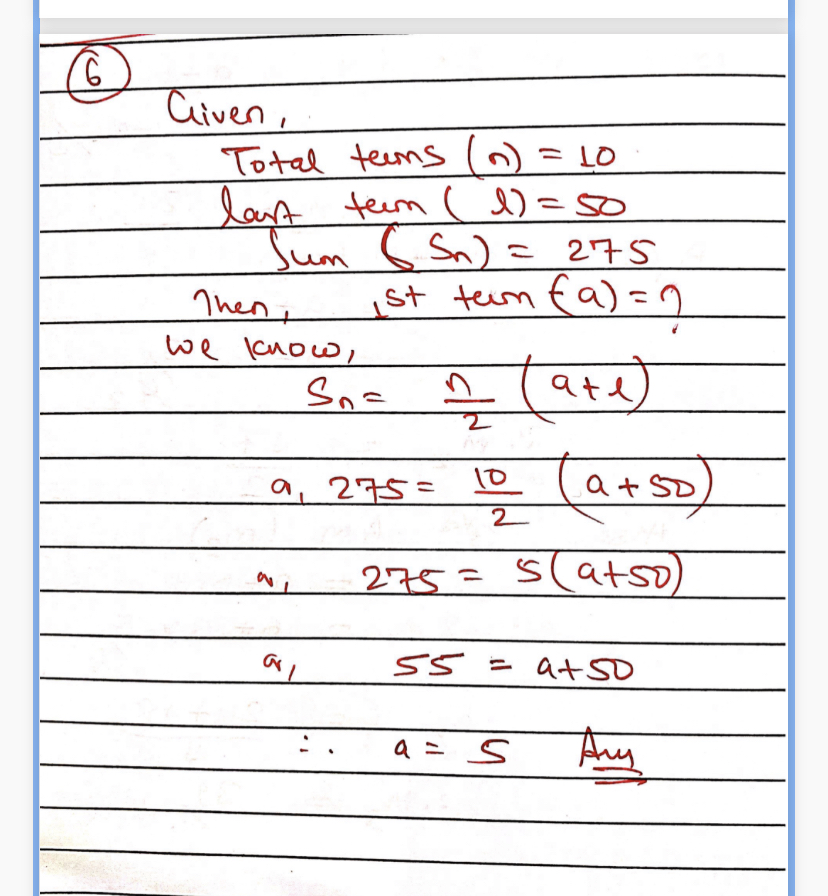 6
Given,
Total terms (n) = 10
last term (l) = 50
Sum (Sn) = 275
Then, 1st term (a) = ?
We know,
Sn = n/2 (a+l)
or, 275 = 10/2 (a+50)
or, 275 = 5(a+50)
or, 55 = a+50
∴ a = 5 Ans